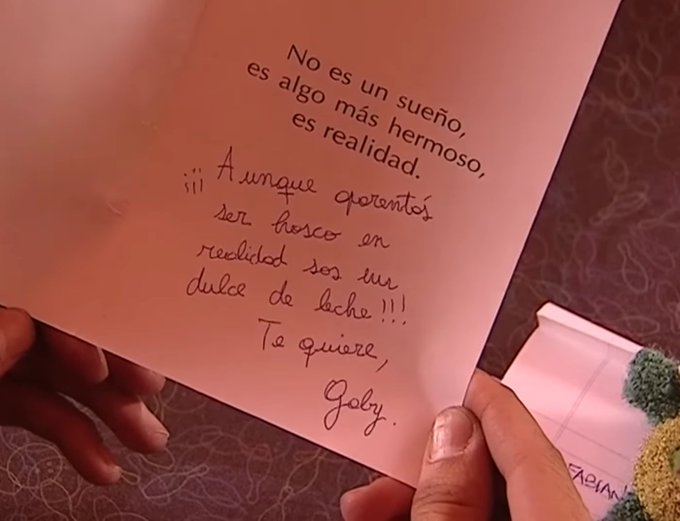 No es un sueño,
es algo más hermoso,
es realidad.
¡¡¡ Aunque aparentás
ser hosco en
realidad sos un
dulce de leche!!!
Te quiere,
Gaby.
FABIAN